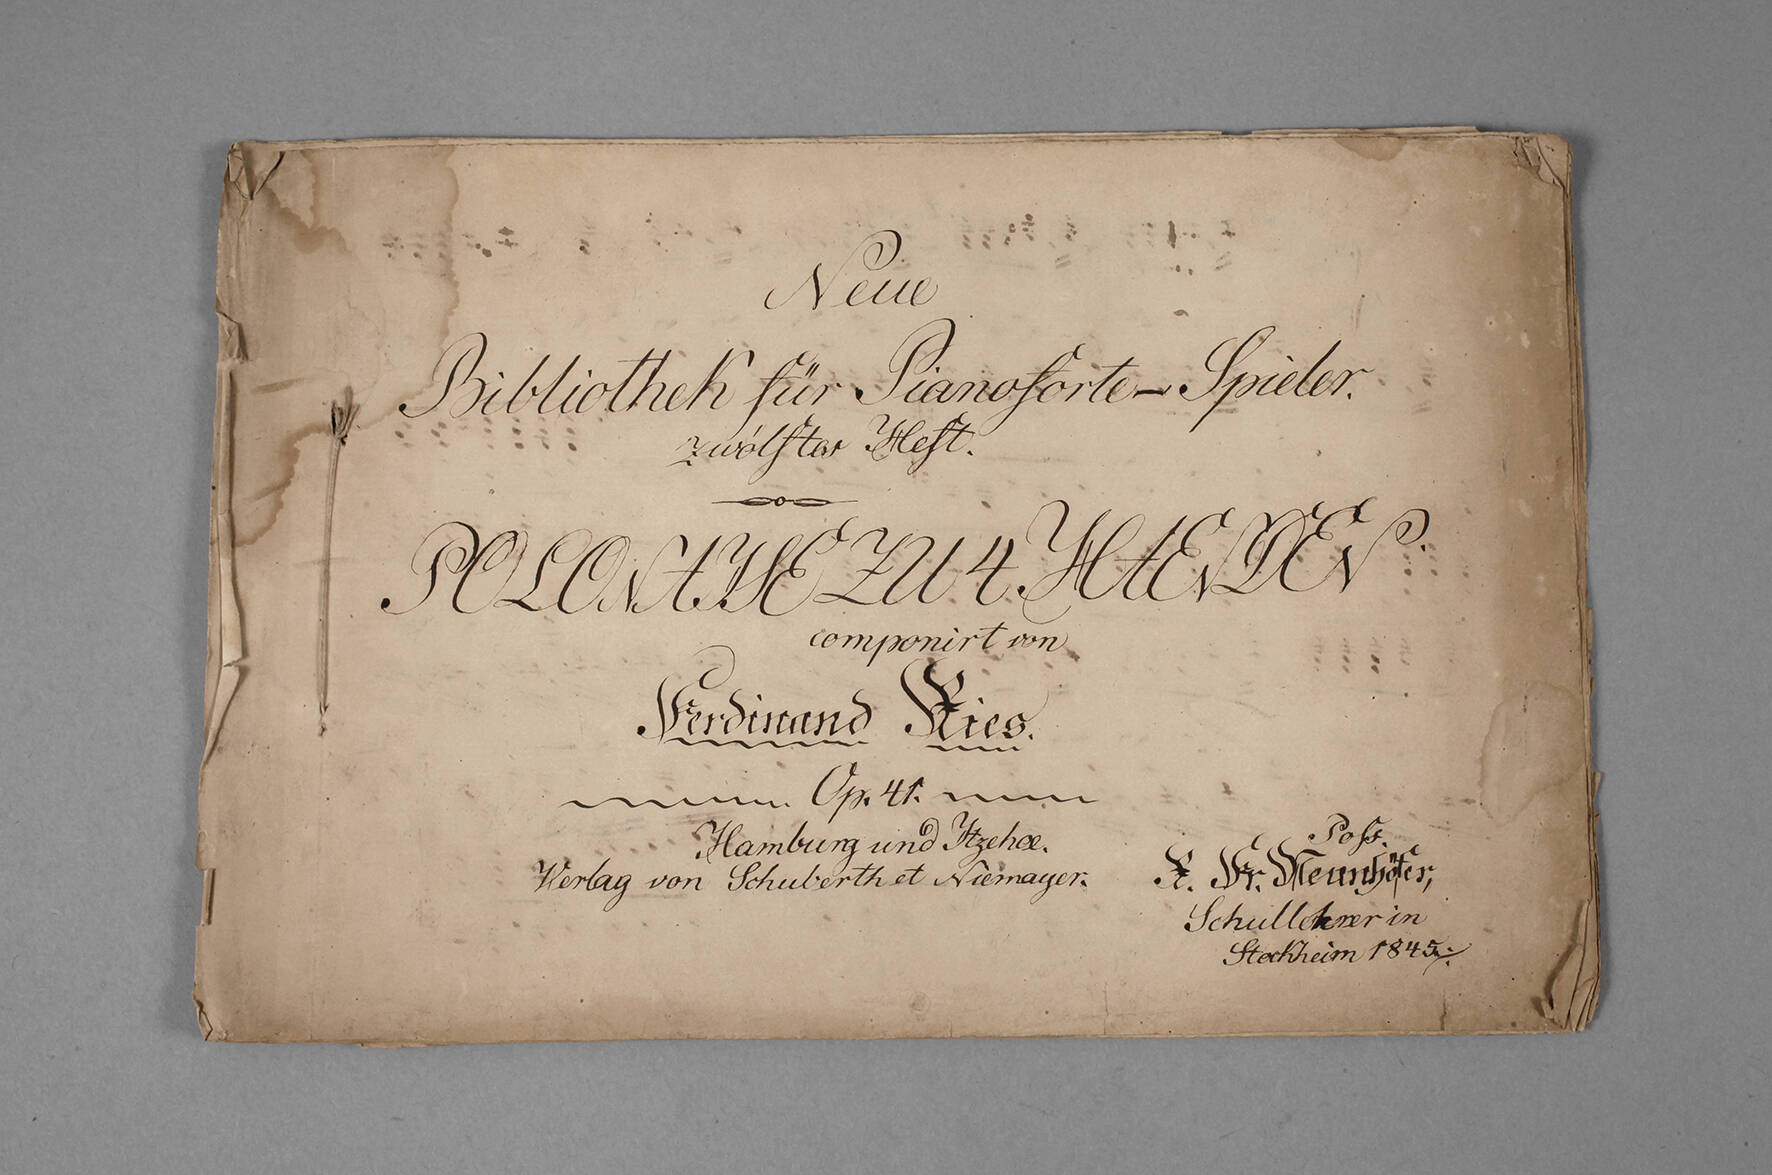 Neue
Bibliothek für Pianoforte-Spieler.
zwölftes Heft.
POLONAISE ZU 4 HAENDEN.
componirt von
Ferdinand Ries.
Op. 41.
Hamburg und Itzehoe.
Verlag von Schuberth et Niemayer.
Poss.
K. Fr. Neunhöfer,
Schullehrer in
Stockheim 1845.